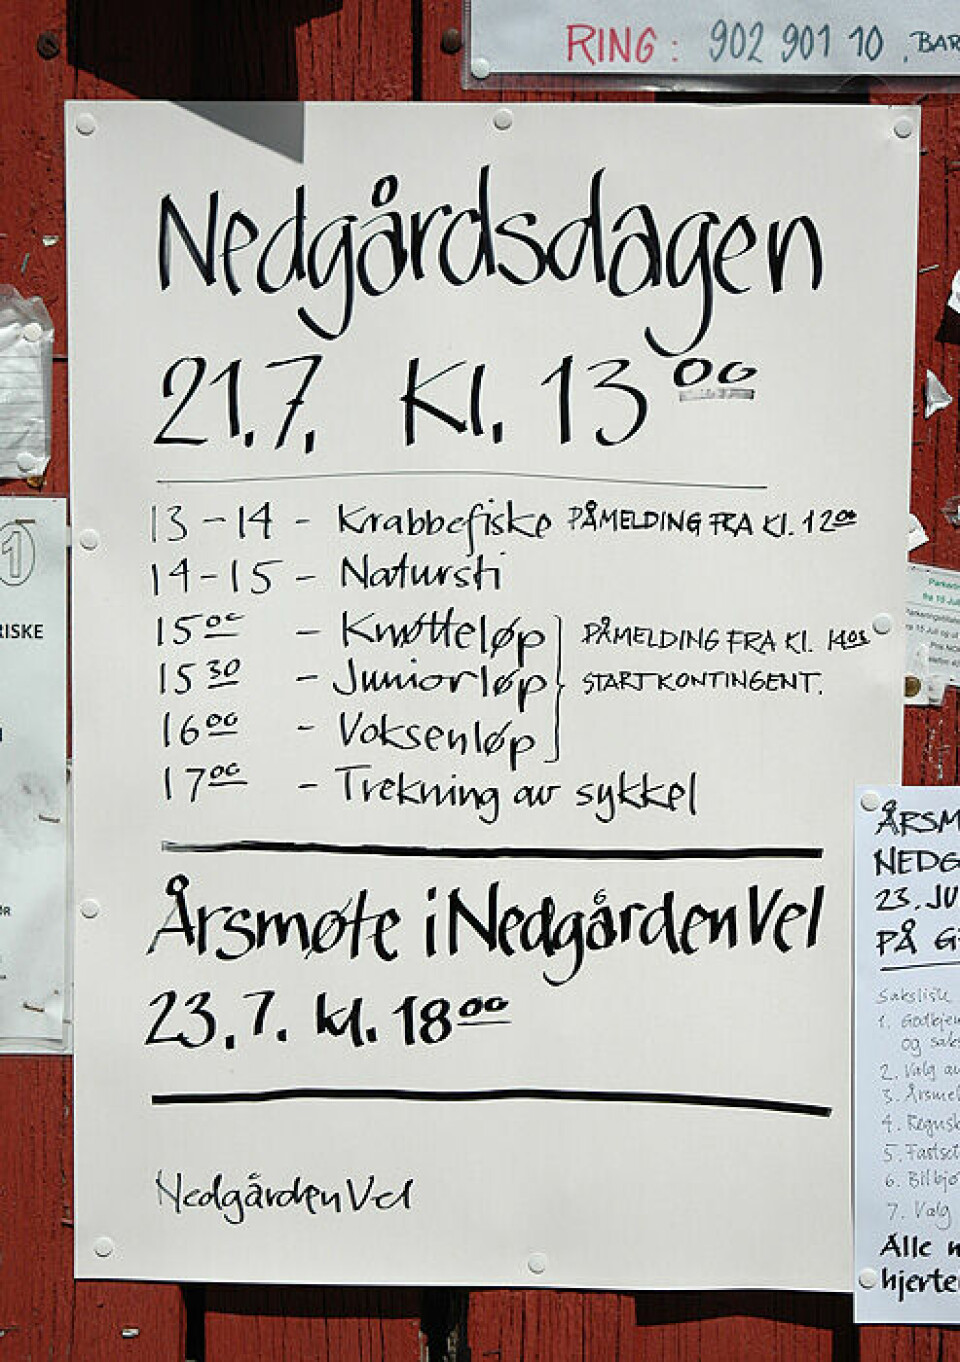 RING: 902 901 10, BAR
Nedgårdsdagen
21.7. Kl. 13 00
13-14 - Krabbefiske PÅMELDING FRA Kl. 12 00
14-15 - Natursti
15 00 - Knøtteløp PÅMELDING FRA Kl. 14 03
15 30 - Juniorløp STARTKONTINGENT.
16 00 - Voksenløp
17 00 - Trekning av sykkel
Årsmøte i Nedgården Vel
23.7. kl. 18 00
Nedgården Vel
1
RISKE
ÅRSM
NEDG
23. JU
PÅ G
Saksliste
1. Godkjen
og saks
2. Valg av
3. Årsmel
4. Regnsk
5. Fastset
6. Bilkjø
7. Valg
Alle m
hjerte